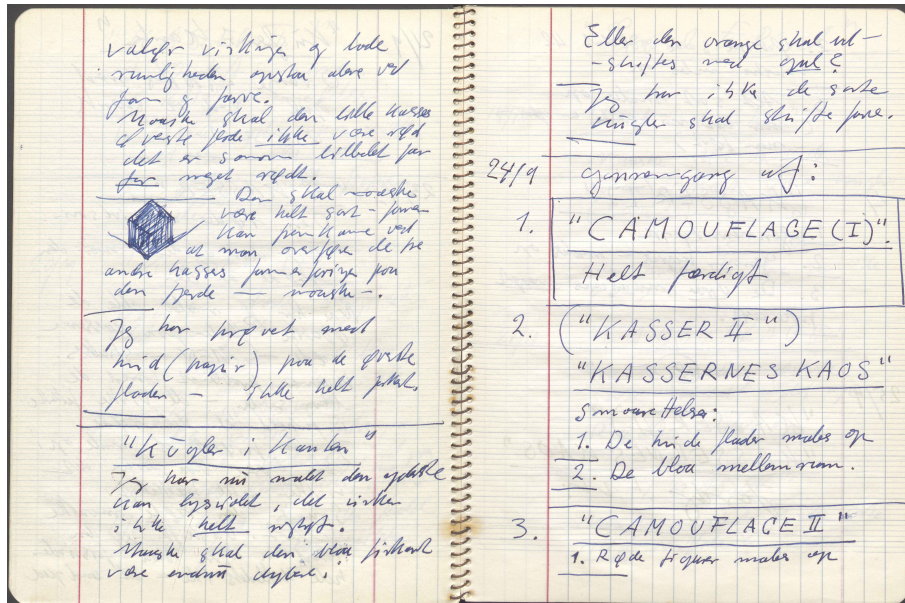 valgte virkninger og både
rumligheden opstår alene ved
form og farve.
Maaske skal den lille kasses
øverste flade ikke være rød
det er som om billedet får
for meget rødt.
Den skal maaske
være helt sort – farven
kan fremkomme ved
at man overfører de tre
andre kasses farver på
den fjerde — maaske –.
Jeg har prøvet med
hvid (papir) paa de øverste
flader – ikke helt
"Kugler i Kanten"
Jeg har nu malet den yderste
kan lysviolet, det virker
ikke helt rigtigt.
Maaske skal den blaa firkant
være endnu dybere.
Eller den orange skal ud-
-skiftes med gul?
Jeg har ikke de sorte
kugler skal skifte farve.
24/9 gennemgang af:
1. "CAMOUFLAGE (I)".
Helt færdigt
2. ("KASSER II")
"KASSERNES KAOS"
Smaarettelser:
1. De hvide flader males op
2. De blaa mellemrum.
3. "CAMOUFLAGE II"
1. Røde figurer males op